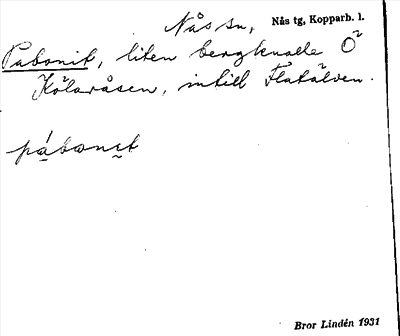 Nås sn, Nås tg, Kopparb. l.
Pabonit, liten bergknalle O
Kölaråsen, intill Flatälven.
pábonit
Bror Lindén 1931